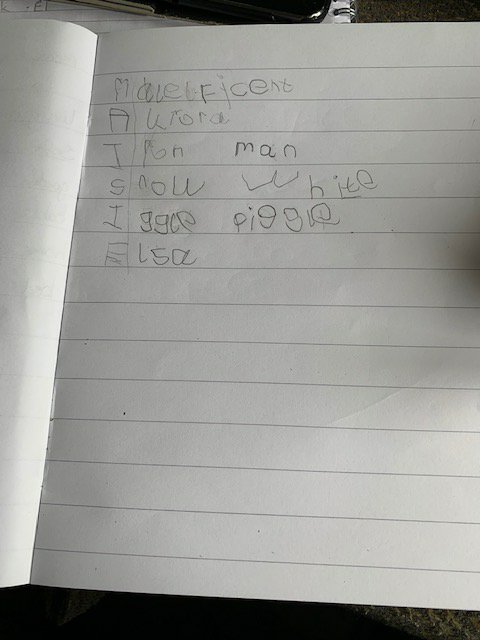 Maleficent
Aurora
Iron man
Snow White
Iggle piggle
Elsa